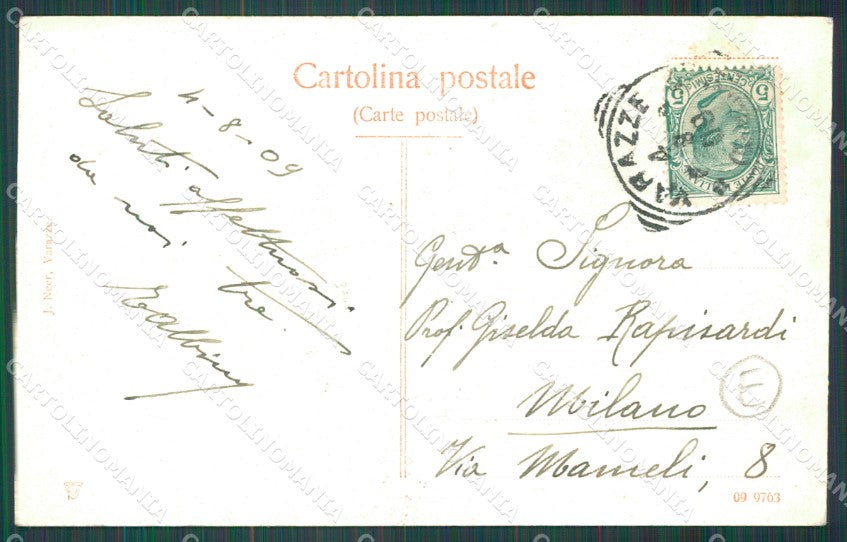 Cartolina postale
(Carte postale)
4-8-09
Saluti affettuosi
da noi tre
Gent.ª Signora
Prof. Giselda Rapisardi
Milano
Via Mameli, 8
VARAZZE
5 CENTESIMI 5
J. Nuer, Varazze
09 9763
CARTOLINOMANIA